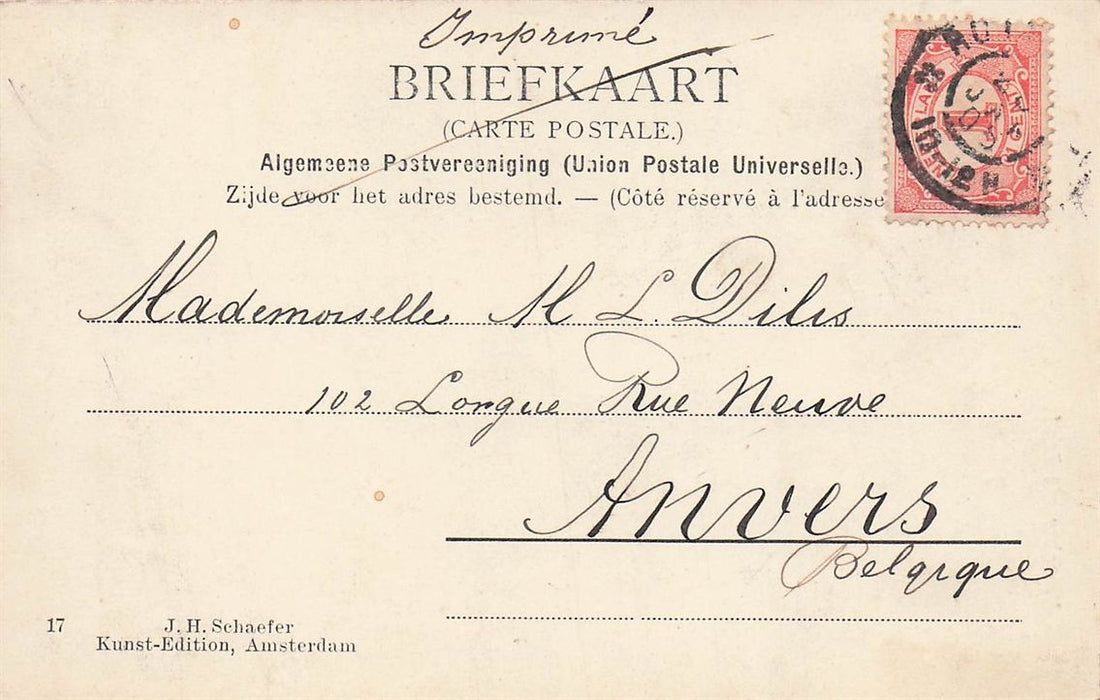 Imprimé
BRIEFKAART
(CARTE POSTALE.)
Algemeene Postvereeniging (Union Postale Universelle.)
Zijde voor het adres bestemd. — (Côté réservé à l'adresse
Mademoiselle M L. Dilis
102 Longue Rue Neuve
Anvers
Belgique
17
J. H. Schaefer
Kunst-Edition, Amsterdam